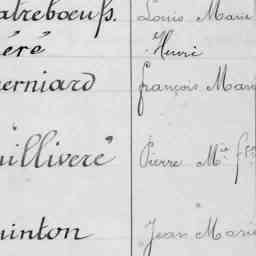 atrebœufs. Louis Marie
éré Henri
erniard François Mari
uilliveré Pierre Mie
uinton Jean Marie